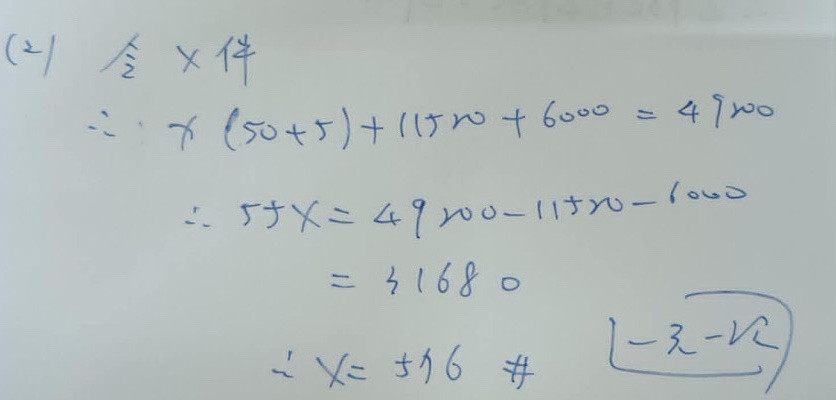 (2) 令 x 件
∴ x (50+5)+11520+6000 = 49200
∴ 55x = 49200-11520-6000
= 31680
∴ x = 576 #
一元一次